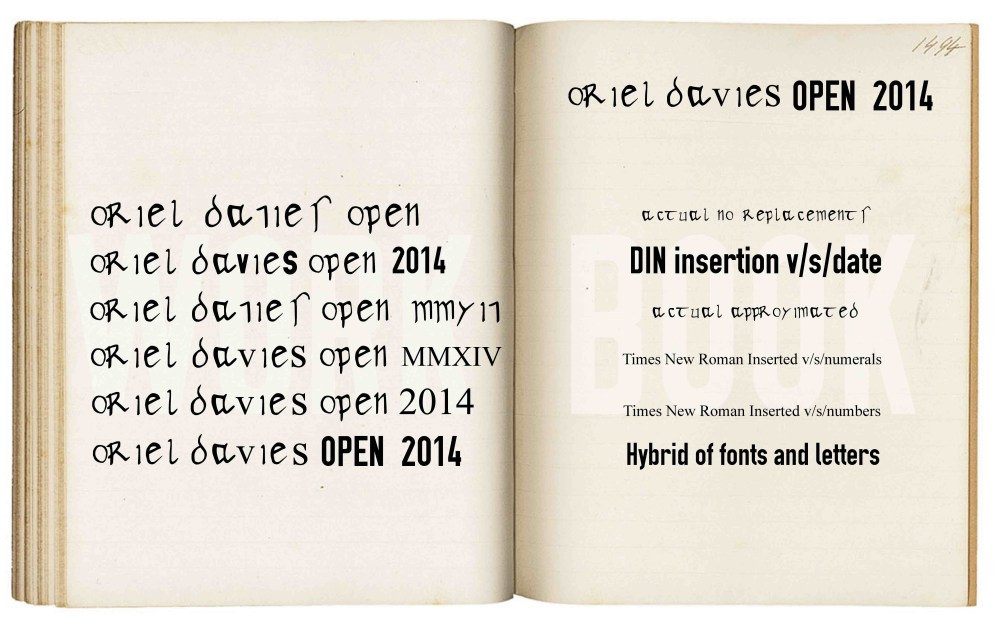 oriel davieſ open
oriel davies open 2014
oriel davieſ open mmxiv
oriel davies open MMXIV
oriel davies open 2014
oriel davies OPEN 2014
WORK BOOK
1494
oriel davies OPEN 2014
actual no replacementſ
DIN insertion v/s/date
actual approximated
Times New Roman Inserted v/s/numerals
Times New Roman Inserted v/s/numbers
Hybrid of fonts and letters